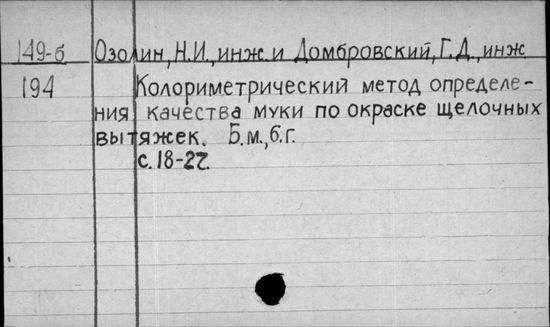 149-б Озолин, Н.И., инж. и Домбровский, Г.Д., инж.
194 Колориметрический метод определе-
ния качества муки по окраске щелочных
вытяжек. Б.м., б.г.
с. 18-27.